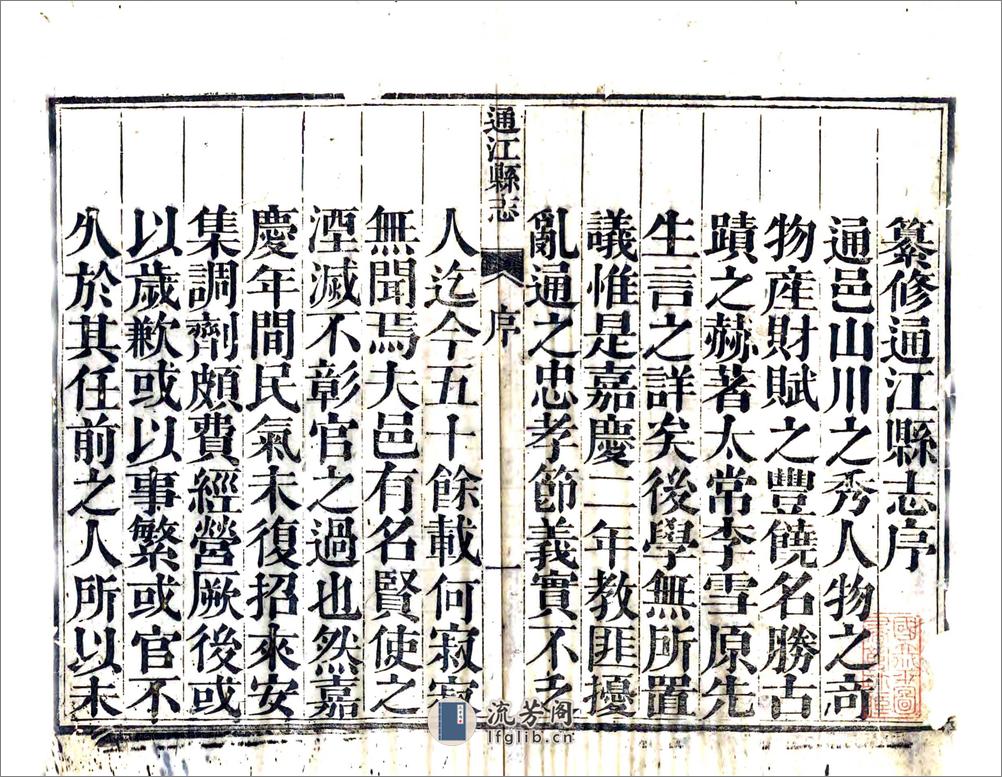 纂修通江縣志序
通邑山川之秀人物之奇
物産財賦之豐饒名勝古
蹟之赫著太常李雪原先
生言之詳矣後學無所置
議惟是嘉慶二年教匪擾
亂通之忠孝節義實不乏
通江縣志 序 一
人迄今五十餘載何寂寂
無聞焉夫邑有名賢使之
湮滅不彰官之過也然嘉
慶年間民氣未復招來安
集調劑頗費經營厥後或
以歲歉或以事繁或官不
久於其任前之人所以未
流芳阁
lfglib.cn